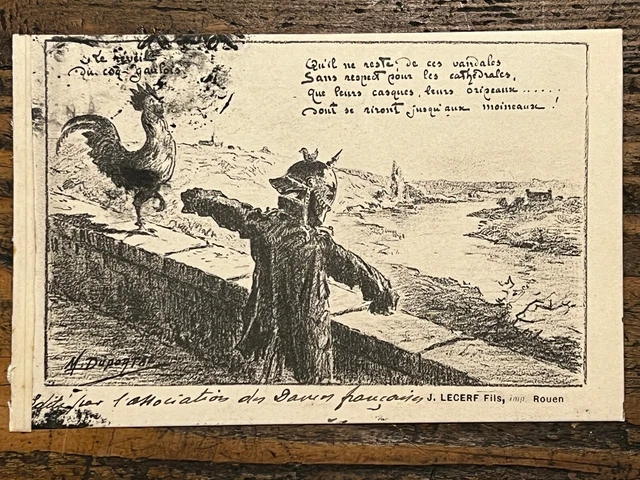 Le réveil
du coq gaulois
Qu'il ne reste de ces vandales
Sans respect pour les cathédrales,
Que leurs casques, leurs oripeaux......
Dont se riront jusqu'aux moineaux !
par l'association des Dames françaises J. LECERF Fils, imp. Rouen